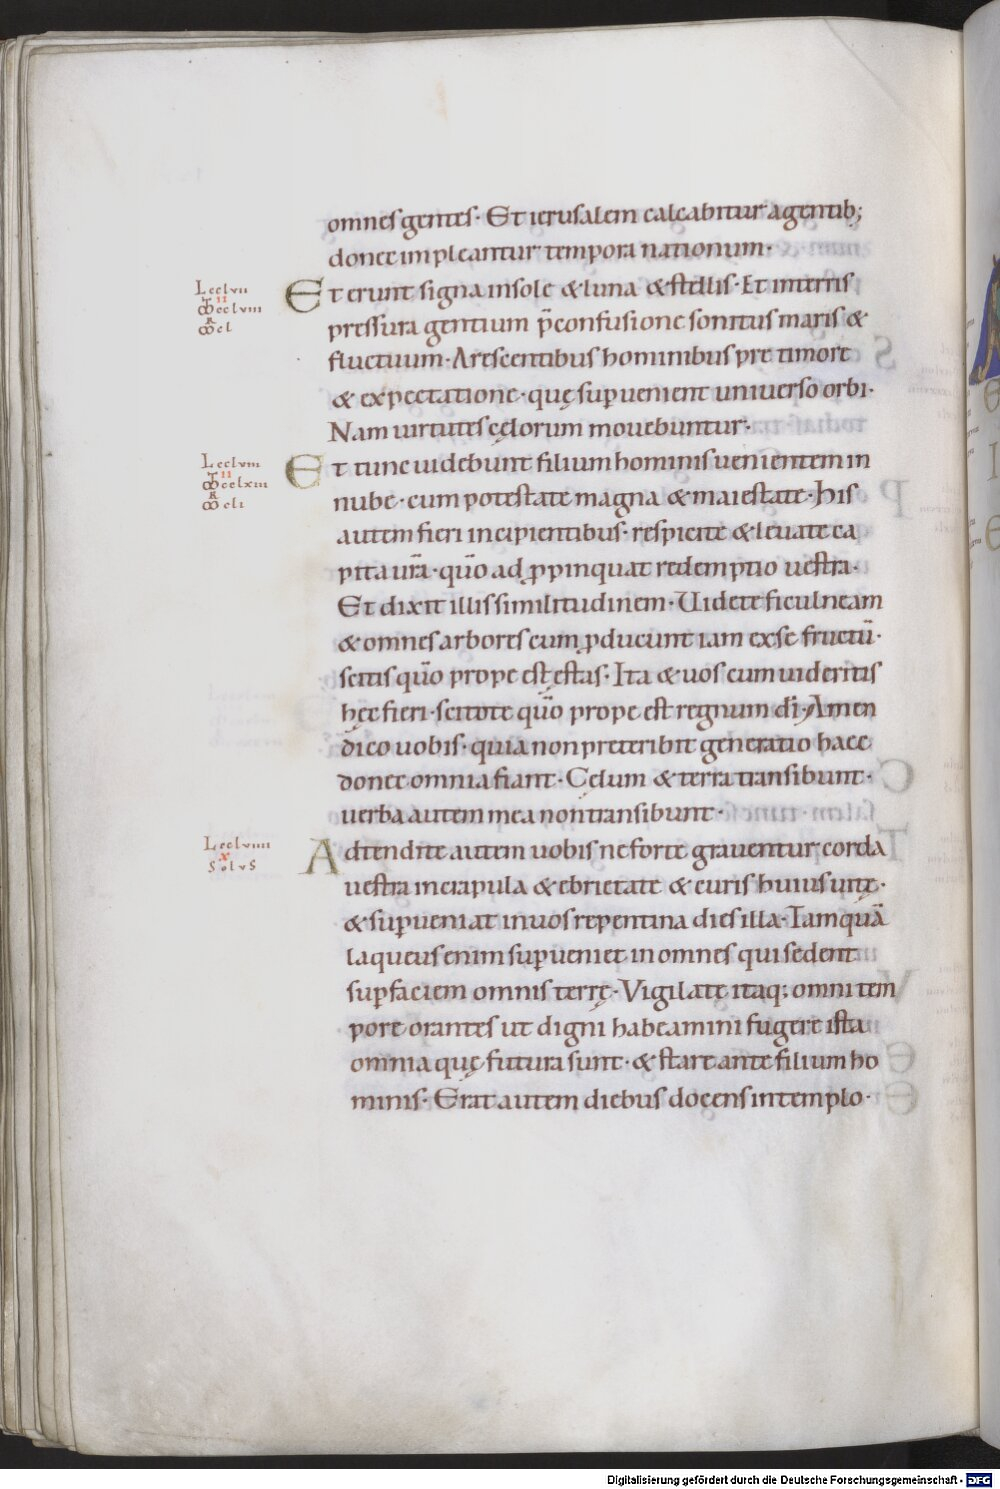 omnes gentes· Et ierusalem calcabitur a gentib;
donec impleantur tempora nationum·
Lcclvii
II
Mcclviii
R
Mcl
Et erunt signa in sole & luna & stellis· Et in terris
pressura gentium p̄ confusione sonitus maris &
fluctuum· Arescentibus hominibus pre timore
& expectatione· quę sup uenient uniuerso orbi·
Nam uirtutes cęlorum mouebuntur·
Lcclviii
II
Mcclxiii
R
Mcli
Et tunc uidebunt filium hominis uenientem in
nube· cum potestate magna & maiestate· His
autem fieri incipientibus· respicite & leuate ca
pita ur̄a· quō ad ꝓpinquat redemptio uestra·
Et dixit illis similitudinem· Uidete ficulneam
& omnes arbores cum ꝓducunt iam ex se fructū·
scitis quō prope est ęstas· Ita & uos cum uideritis
hęc fieri· scitote quō prope est regnum dī· Amen
dico uobis· quia non preteribit generatio haec
donec omnia fiant· Cęlum & terra transibunt·
uerba autem mea non transibunt·
Lcclviiii
X
Solus
Adtendite autem uobis ne forte grauentur corda
uestra in crapula & ebrietate & curis huius uitę·
& suꝑueniat in uos repentina dies illa· Tamquā
laqueus enim suꝑueniet in omnes qui sedent
suꝑ faciem omnis terrę· Vigilate itaq; omni tem
pore orantes ut digni habeamini fugere ista
omnia quę futura sunt· & stare ante filium ho
minis· Erat autem diebus docens in templo·
Digitalisierung gefördert durch die Deutsche Forschungsgemeinschaft - DFG